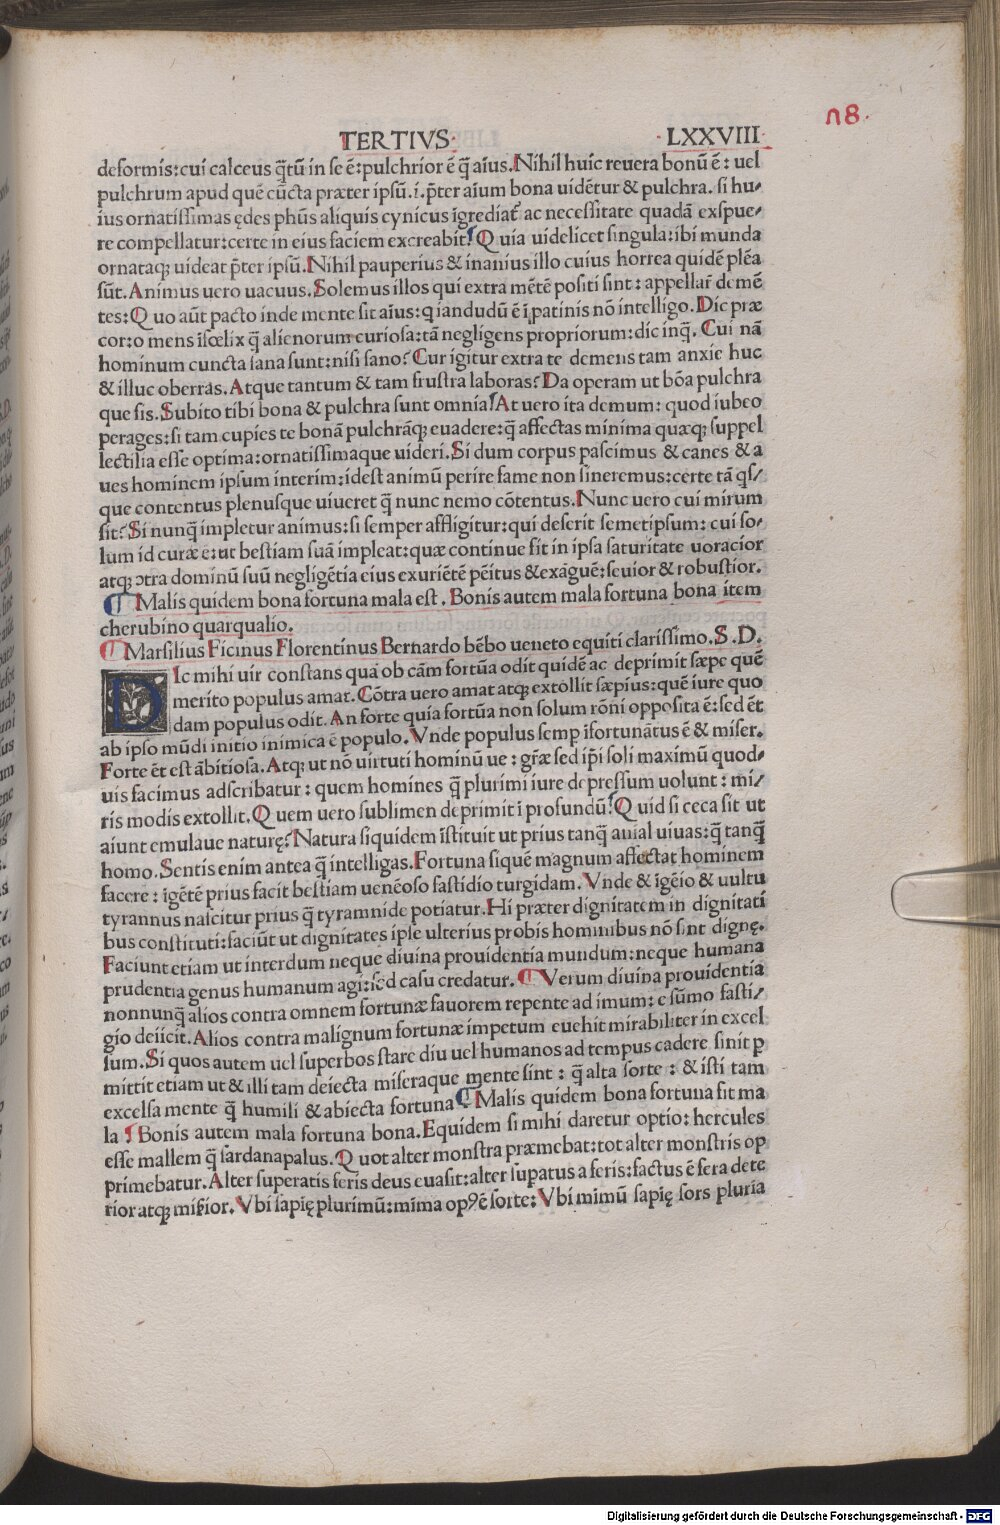 TERTIVS· ·LXXVIII·
78·
deformis: cui calceus q̃tũ in se ẽ: pulchrior ẽ q̃ aĩus. Nihil huic reuera bonũ ẽ: uel
pulchrum apud quẽ cũcta præter ipsũ. i. p̃ter aĩum bona uidẽtur & pulchra. si hu-
ius ornatissimas ędes phũs aliquis cynicus ĩgrediať ac necessitate quadã exspue-
re compellatur: certe in eius faciem excreabit? Quia uidelicet singula: ibi munda
ornataqȝ uideat p̃ter ipsũ. Nihil pauperius & inanius illo cuius horrea quidẽ plẽa
sũt. Animus uero uacuus. Solemus illos qui extra mẽtẽ positi sint: appellař demẽ
tes: Quo aũt pacto inde mente sit aĩus: q iandudũ ẽ ĩ patinis nõ intelligo. Dic præ
cor: o mens ĩfœlix q̃ alienorum curiosa: tã negligens propriorum: dic inq̃. Cui nã
hominum cuncta sana sunt: nisi sano? Cur igitur extra te demens tam anxie huc
& illuc oberras. Atque tantum & tam frustra laboras? Da operam ut bõa pulchra
que sis. Subito tibi bona & pulchra sunt omnia! At uero ita demum: quod iubeo
perages: si tam cupies te bonã pulchrãqȝ euadere: q̃ affectas minima quæqȝ suppel
lectilia esse optima: ornatissimaque uideri. Si dum corpus pascimus & canes & a
ues hominem ipsum interim: idest animũ perire fame non sineremus: certe tã q̃s/
que contentus plenusque uiueret q̃ nunc nemo cõtentus. Nunc uero cui mirum
sit? Si nunq̃ impletur animus: si semper affligitur: qui deserit semetipsum: cui so-
lum id curæ ẽ: ut bestiam suã impleat: quæ continue sit in ipsa saturitate uoracior
atqȝ ↄtra dominũ suũ negligẽtia eius exuriẽtẽ pẽitus & exãguẽ: seuior & robustior.
¶ Malis quidem bona fortuna mala est. Bonis autem mala fortuna bona item
cherubino quarqualio.
¶ Marsilius Ficinus Florentinus Bernardo bẽbo ueneto equiti clarissimo. S. D.
DIc mihi uir constans quã ob cãm fortũa odit quidẽ ac deprimit sæpe quẽ
merito populus amat. Cõtra uero amat atqȝ extollit sæpius: quẽ iure quo
dam populus odit. An forte quia fortũa non solum rõni opposita ẽ: sed ẽt
ab ipso mũdi initio inimica ẽ populo. Vnde populus semp ĩsfortunãtus ẽ & miser.
Forte ẽt est ãbitiosa. Atqȝ ut nõ uirtuti hominũ ue: gr̃æ sed ip̃i soli maximũ quod-
uis facimus adscribatur: quem homines q̃ plurimi iure depressum uolunt: mi/
ris modis extollit. Quem uero sublimen deprimit ĩ profundũ! Quid si ceca sit ut
aiunt emulaue naturę? Natura siquidem ĩstituit ut prius tanq̃ anial uiuas: q̃ tanq̃
homo. Sentis enim antea q̃ intelligas. Fortuna siquẽ magnum affectat hominem
facere: ĩgẽtẽ prius facit bestiam uenẽoso fastidio turgidam. Vnde & ĩgẽio & uultu
tyrannus nascitur prius q̃ tyramnide potiatur. Hi præter dignitatem in dignitati
bus constituti: faciũt ut dignitates ipse ulterius probis hominibus nõ sint dignę.
Faciunt etiam ut interdum neque diuina prouidentia mundum: neque humana
prudentia genus humanum agi: sed casu credatur. ¶ Verum diuina prouidentia
nonnunq̃ alios contra omnem fortunæ fauorem repente ad imum: e sũmo fasti/
gio deiicit. Alios contra malignum fortunæ impetum euehit mirabiliter in excel
sum. Si quos autem uel superbos stare diu uel humanos ad tempus cadere sinit ꝑ
mittit etiam ut & illi tam deiecta miseraque mente sint: q̃ alta sorte: & isti tam
excelsa mente q̃ humili & abiecta fortuna ¶ Malis quidem bona fortuna sit ma
la ! Bonis autem mala fortuna bona. Equidem si mihi daretur optio: hercules
esse mallem q̃ sardanapalus. Quot alter monstra præmebat: tot alter monstris op
primebatur. Alter superatis feris deus euasit: alter supatus a feris: factus ẽ fera dete
rior atqȝ misior. Vbi sapię plurimũ: mima opꝰ ẽ sorte: Vbi mimũ sapię sors pluria
Digitalisierung gefördert durch die Deutsche Forschungsgemeinschaft - DFG